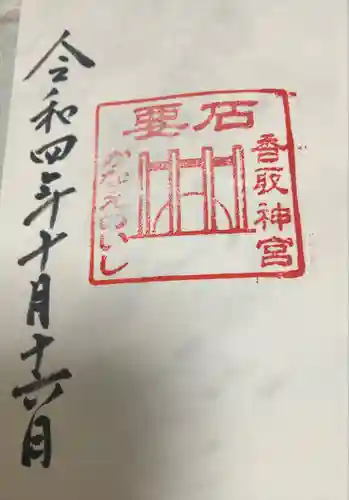 要石
香取神宮
かなめいし
令和四年十月十六日